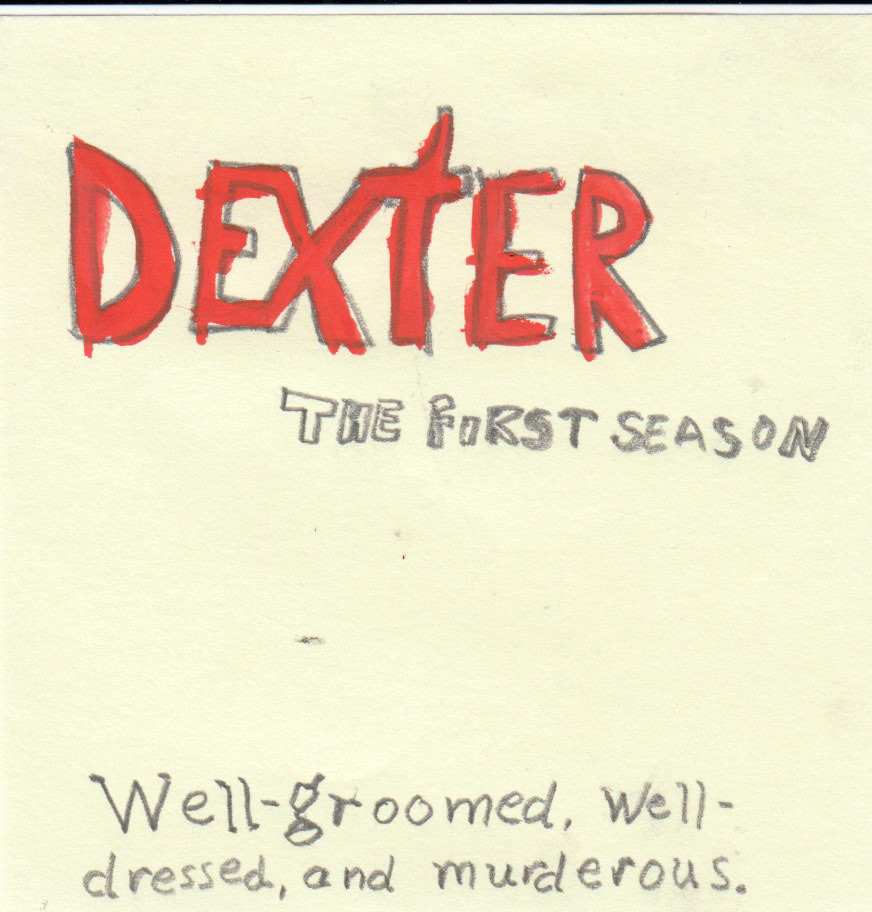 DEXTER
THE FIRST SEASON
Well-groomed, well-
dressed, and murderous.